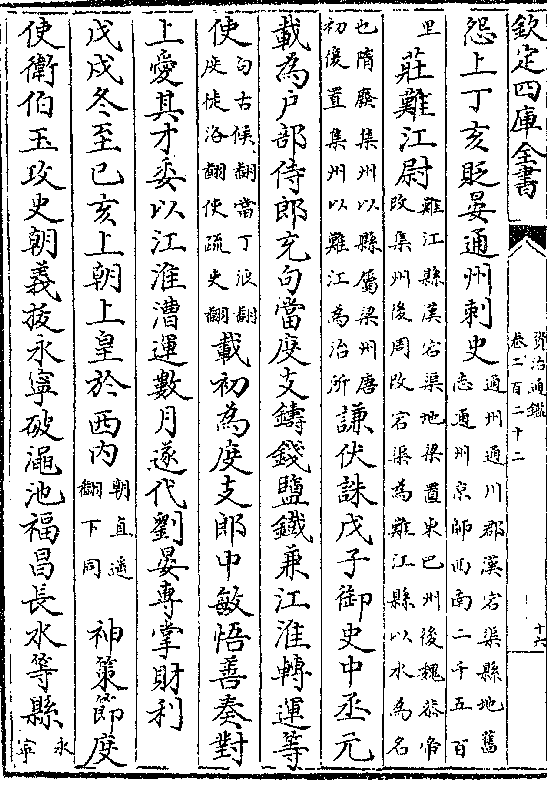 欽定四庫全書
資治通鑑
卷二百二十二
十六
怨上丁亥貶晏通州刺史
通州通川郡漢宕渠縣地舊
志通州京師西南二千五百
里
莊難江尉
難江縣漢宕渠地梁置東巴州後魏恭帝
改集州後周改宕渠為難江縣以水為名
也隋廢集州以縣屬梁州唐
初復置集州以難江為治所
謙伏誅戊子御史中丞元
載為户部侍郎充句當度支鑄錢鹽鐵兼江淮轉運等
使
句古候翻當丁浪翻
度徒洛翻使疏史翻
載初為度支郎中敏悟善奏對
上愛其才委以江淮漕運數月遂代劉晏專掌財利
戊戌冬至已亥上朝上皇於西内
朝直遥
翻下同
神策節度
使衛伯玉攻史朝義拔永寧破澠池福昌長水等縣
永
寧